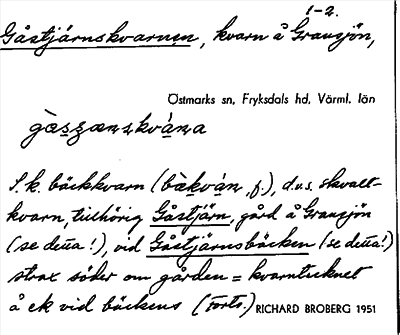 1-2.
Gåstjärnskvarnen, kvarn å Gransjön,
Östmarks sn, Fryksdals hd, Värml. län
S.k. bäckkvarn (bæ̀kvá̠n, f.), d.v.s. skvalt-
kvarn, tillhörig Gåstjärn, gård å Gransjön
(se detta!), vid Gåstjärnsbäcken (se detta!)
strax söder om gården = kvarntecknet
å ek vid bäckens (Forts.) RICHARD BROBERG 1951